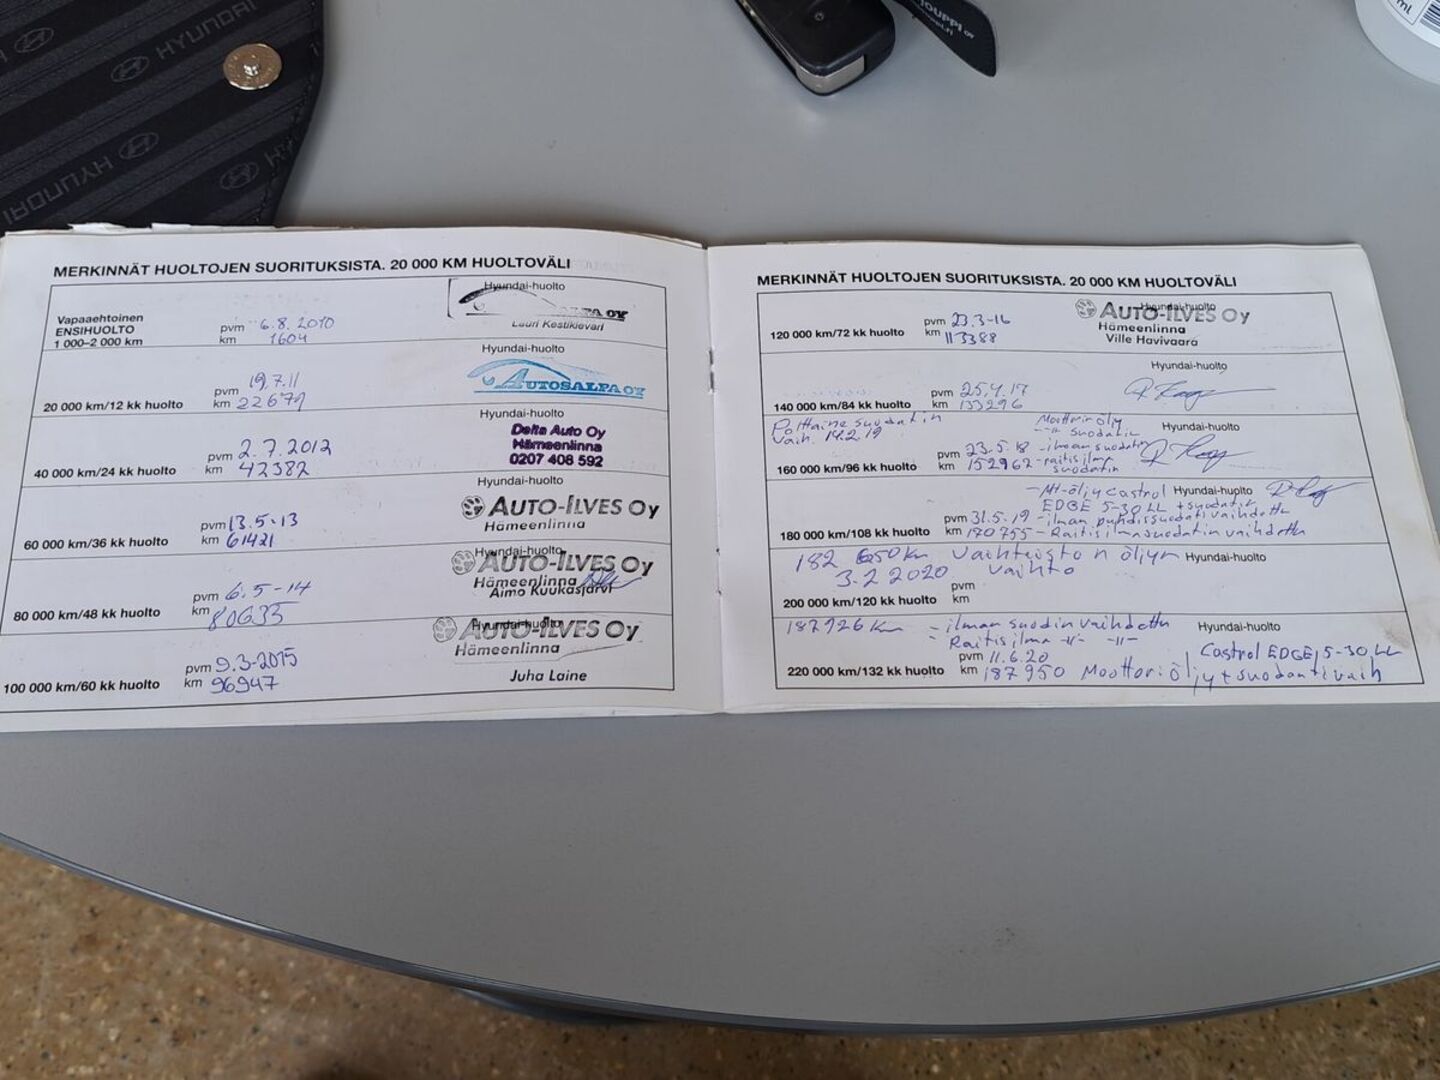 HYUNDAI
HYUNDAI
JOUPPI OY
ml
MERKINNÄT HUOLTOJEN SUORITUKSISTA. 20 000 KM HUOLTOVÄLI
Vapaaehtoinen
ENSIHUOLTO
1 000–2 000 km
pvm 6.8.2010
km 1604
Hyundai-huolto
AUTOSALPA OY
Lauri Kestikievari
20 000 km/12 kk huolto
pvm 19.7.11
km 22671
Hyundai-huolto
AUTOSALPA OY
40 000 km/24 kk huolto
pvm 2.7.2012
km 42382
Hyundai-huolto
Delta Auto Oy
Hämeenlinna
0207 408 592
60 000 km/36 kk huolto
pvm 13.5-13
km 61421
Hyundai-huolto
AUTO-ILVES Oy
Hämeenlinna
80 000 km/48 kk huolto
pvm 6.5-14
km 80635
Hyundai-huolto
AUTO-ILVES Oy
Hämeenlinna
Aimo Kuukasjärvi
100 000 km/60 kk huolto
pvm 9.3-2015
km 96947
Hyundai-huolto
AUTO-ILVES Oy
Hämeenlinna
Juha Laine
MERKINNÄT HUOLTOJEN SUORITUKSISTA. 20 000 KM HUOLTOVÄLI
120 000 km/72 kk huolto
pvm 23.3-16
km 113388
Hyundai-huolto
AUTO-ILVES Oy
Hämeenlinna
Ville Havivaara
140 000 km/84 kk huolto
pvm 25.4.17
km 133296
Hyundai-huolto
Polttoaine suodatin
vaih. 14.2.19
160 000 km/96 kk huolto
pvm 23.5.18
km 152962
Moottorin öljy
-"- suodatin
-ilman suodatin
-raitis ilma
suodatin
Hyundai-huolto
180 000 km/108 kk huolto
-Mt-öljy Castrol
EDGE 5-30 LL + suodatin
pvm 31.5.19 -ilman puhdissuodati vaihdettu
km 170755 -Raitisilmasuodatin vaihdettu
Hyundai-huolto
182 650 km vaihteisto n öljyn
3.2 2020 vaihto
200 000 km/120 kk huolto
pvm
km
Hyundai-huolto
187926 km - ilman suodin vaihdettu
- Raitisilma -"- -"-
220 000 km/132 kk huolto
pvm 11.6.20
km 187950 Moottori öljy + suodanti vaih
Hyundai-huolto
Castrol EDGE, 5-30, LL